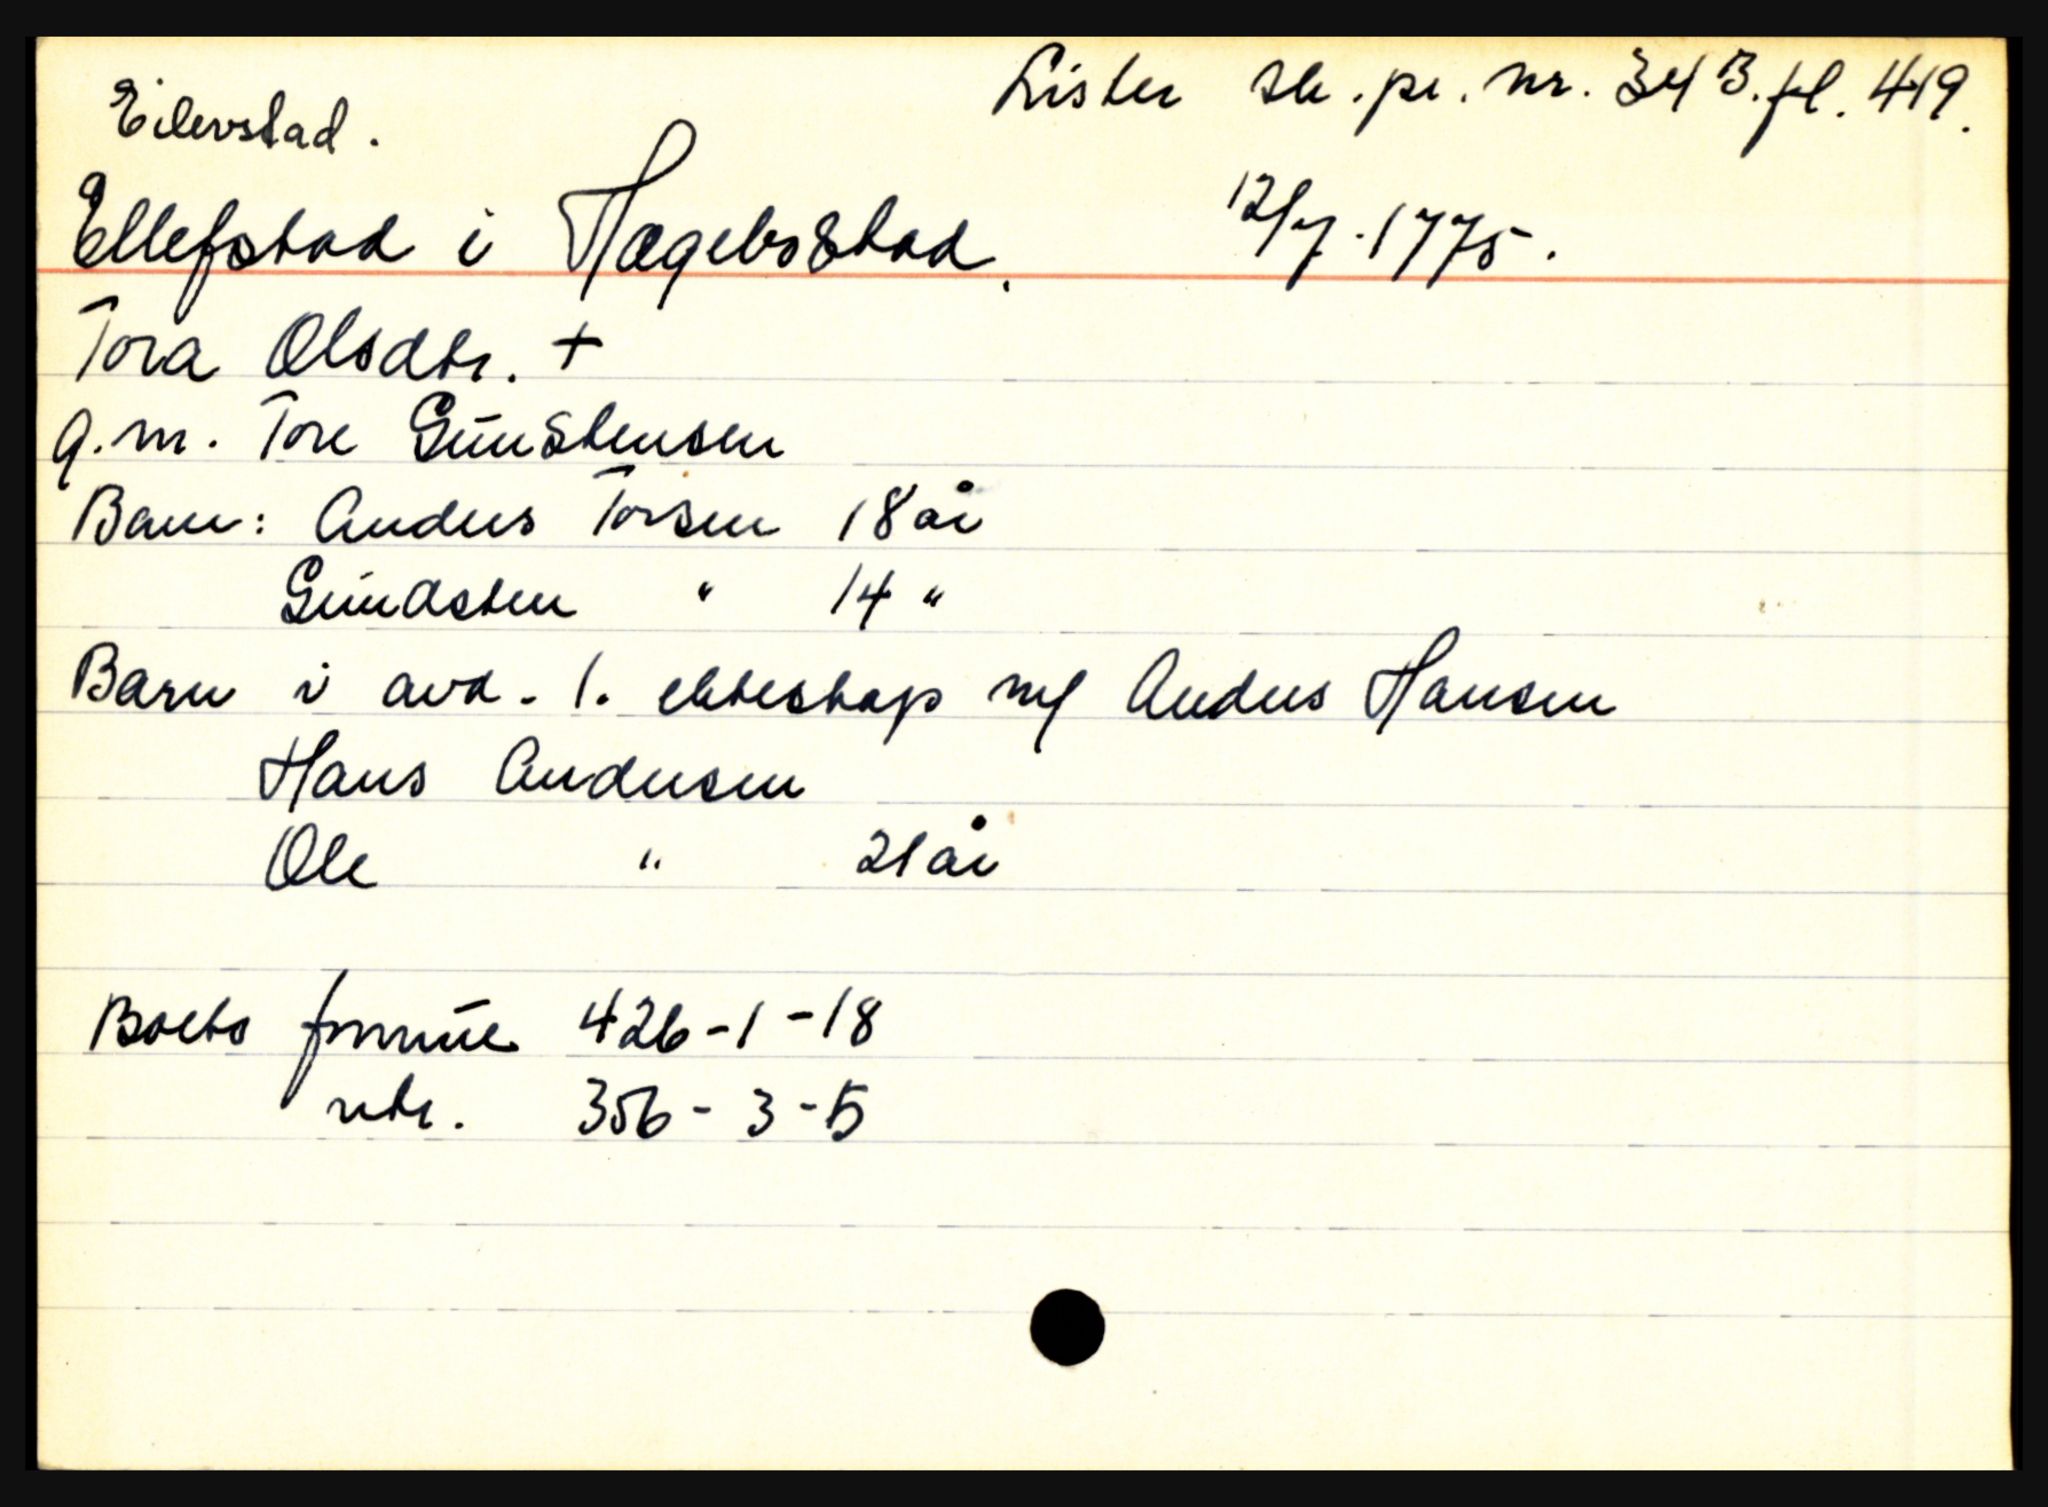 Eilevstad.
Lister sk. pr. nr. 34 B. fl. 419.
Ellefstad i Hægebostad. 12/7-1775.
Tora Olsdtr. +
g.m. Tore Gunstensen
Barn: Anders Torsen 18 år
Gundsten " 14 "
Barn i avd. 1. ekteskap m/ Anders Hansen
Hans Andersen
Ole " 21 år
Boets formue 426-1-18
ntr. 356-3-5